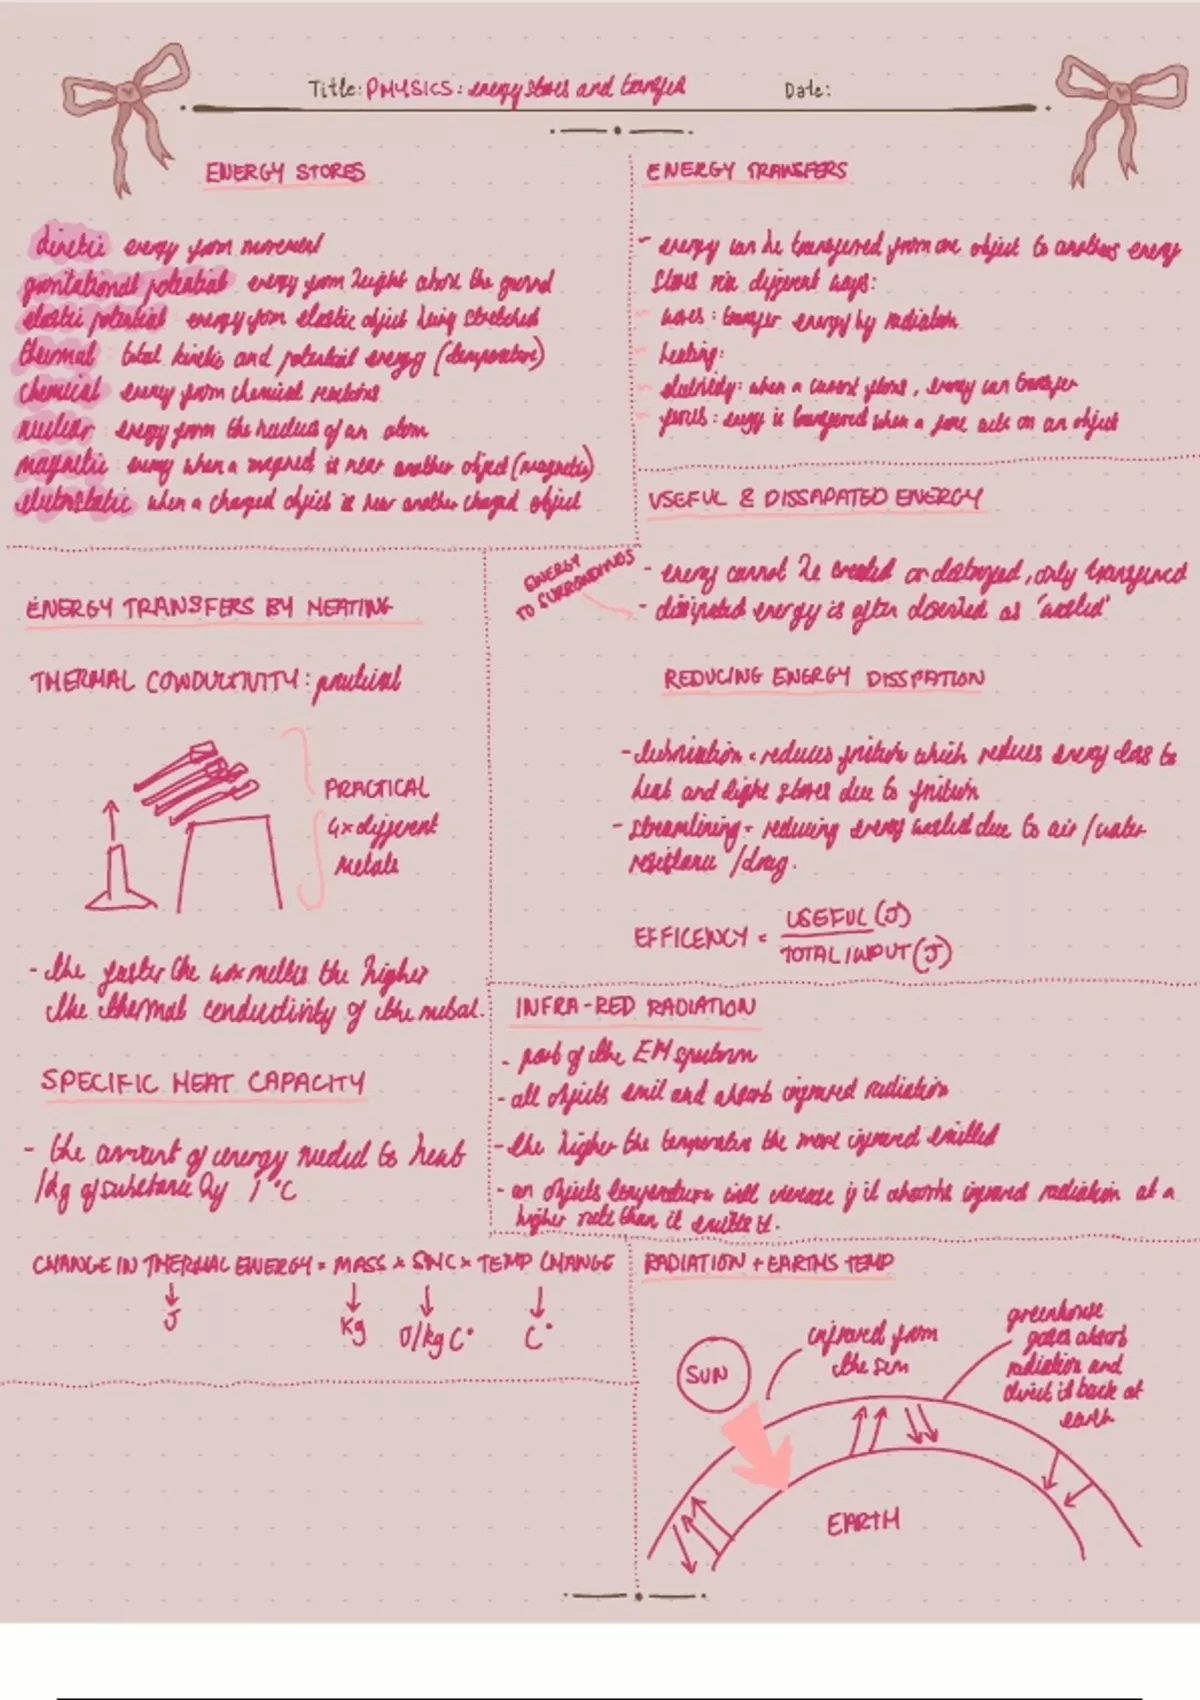 Title: PHYSICS: energy stores and transfer
Date:
ENERGY STORES
kinetic energy from movement
gravitational potential energy from height above the ground
elastic potential energy from elastic object being stretched
thermal total kinetic and potential energy (temperature)
chemical energy from chemical reactions
nuclear energy from the nucleus of an atom
magnetic energy when a magnet is near another object (magnetic)
electrostatic when a charged object is near another charged object
ENERGY TRANSFERS
- energy can be transferred from one object to another energy
stores via different ways:
- waves: transfer energy by radiation
- heating:
- electricity: when a current flows, energy can transfer
- forces: energy is transferred when a force acts on an object
USEFUL & DISSAPATED ENERGY
ENERGY
TO SURRONDINGS
- energy cannot be created or destroyed, only transferred
- dissipated energy is often described as "wasted"
REDUCING ENERGY DISSPATION
- lubrication = reduces friction which reduces energy loss to
heat and light stores due to friction
- streamlining = reducing energy wasted due to air/water
resistance/drag.
EFFICENCY = USEFUL (J)
TOTAL INPUT (J)
ENERGY TRANSFERS BY HEATING
THERMAL CONDUCTIVITY: practical
PRACTICAL
4x different
metals
- the faster the wax melts the higher
the thermal conductivity of the metal.
SPECIFIC HEAT CAPACITY
- the amount of energy needed to heat
1kg of substance by 1°C
CHANGE IN THERMAL ENERGY = MASS x SHC x TEMP CHANGE
J
Kg
J/kg C°
C°
INFRA-RED RADIATION
- part of the EM spectrum
- all objects emit and absorb infrared radiation
- the higher the temperature the more infrared emitted
- an objects temperature will increase if it absorbs infrared radiation at a
higher rate than it emitts it.
RADIATION + EARTHS TEMP
SUN
infrared from
the sun
greenhouse
gases absorb
radiation and
direct it back at
earth
EARTH